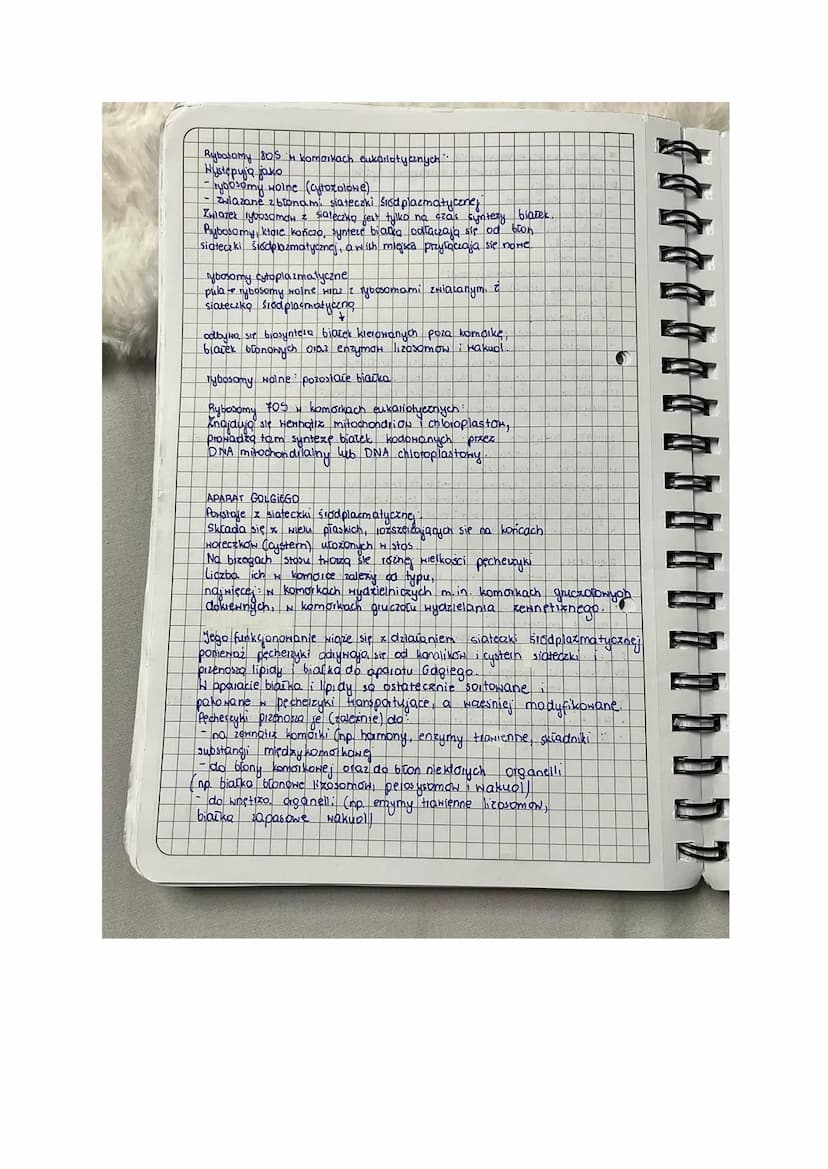 Rybosomy 80S w komórkach eukariotycznych:
Występują jako
- rybosomy wolne (cytozolowe)
- związane z błonami siateczki śródplazmatycznej
Związek rybosomów z siateczką jest tylko na czas syntezy białek.
Rybosomy, które kończą syntezę białka odłączają się od błon
siateczki śródplazmatycznej, a w ich miejsca przyłączają się nowe.
rybosomy cytoplazmatyczne
pula → rybosomy wolne wraz z rybosomami związanym. z
siateczką śródplazmatyczną
↓
odbywa się biosynteza białek kierowanych poza komórkę,
białek błonowych oraz enzymów lizosomów i wakuol.
rybosomy wolne: pozostałe białka
Rybosomy 70S w komórkach eukariotycznych:
Znajdują się wewnątrz mitochondriów i chloroplastów,
prowadzą tam syntezę białek kodowanych przez
DNA mitochondrialny lub DNA chloroplastowy.
APARAT GOLGIEGO
Powstaje z siateczki śródplazmatycznej.
Składa się z wielu płaskich, rozszerzających się na końcach
woreczków (cystern) ułożonych w stos.
Na brzegach stosu tworzą się różnej wielkości pęcherzyki
Liczba ich w komórce zależy od typu,
najwięcej: w komórkach wydzielniczych m.in. komórkach gruczołowych
dokrewnych, w komórkach gruczołu wydzielania zewnętrznego.
Jego funkcjonowanie wiąże się z działaniem siateczki śródplazmatycznej
ponieważ pęcherzyki odrywają się od kanalików i cystern siateczki i
przenoszą lipidy i białka do aparatu Golgiego.
W aparacie białka i lipidy są ostatecznie sortowane i
pakowane w pęcherzyki transportujące, a wcześniej modyfikowane.
Pęcherzyki przenoszą je (zależnie) do:
- na zewnątrz komórki (np. hormony, enzymy trawienne, składniki
substancji międzykomórkowej
- do błony komórkowej oraz do błon niektórych organelli
(np. białka błonowe lizosomów, peroksysomów i wakuol)
- do wnętrza organelli (np. enzymy trawienne lizosomów,
białka zapasowe wakuol)